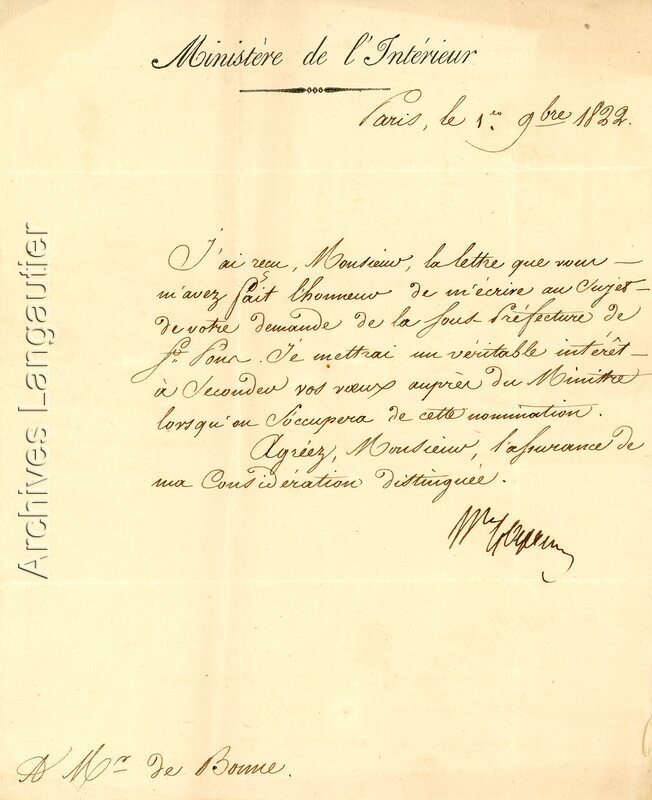 Ministère de l'Intérieur
Paris, le 1.er 9bre 1822.
J'ai reçu, Monsieur, la lettre que vous
m'avez fait l'honneur de m'écrire au Sujet
de votre demande de la Sous-Préfecture de
St. Pons. Je mettrai un véritable intérêt
à Seconder vos vœux auprès du Ministre
lorsqu'on S'occupera de cette nomination.
Agréez, Monsieur, l'assurance de
ma Considération distinguée.
A Mr de Bonne.
Archives Langautier